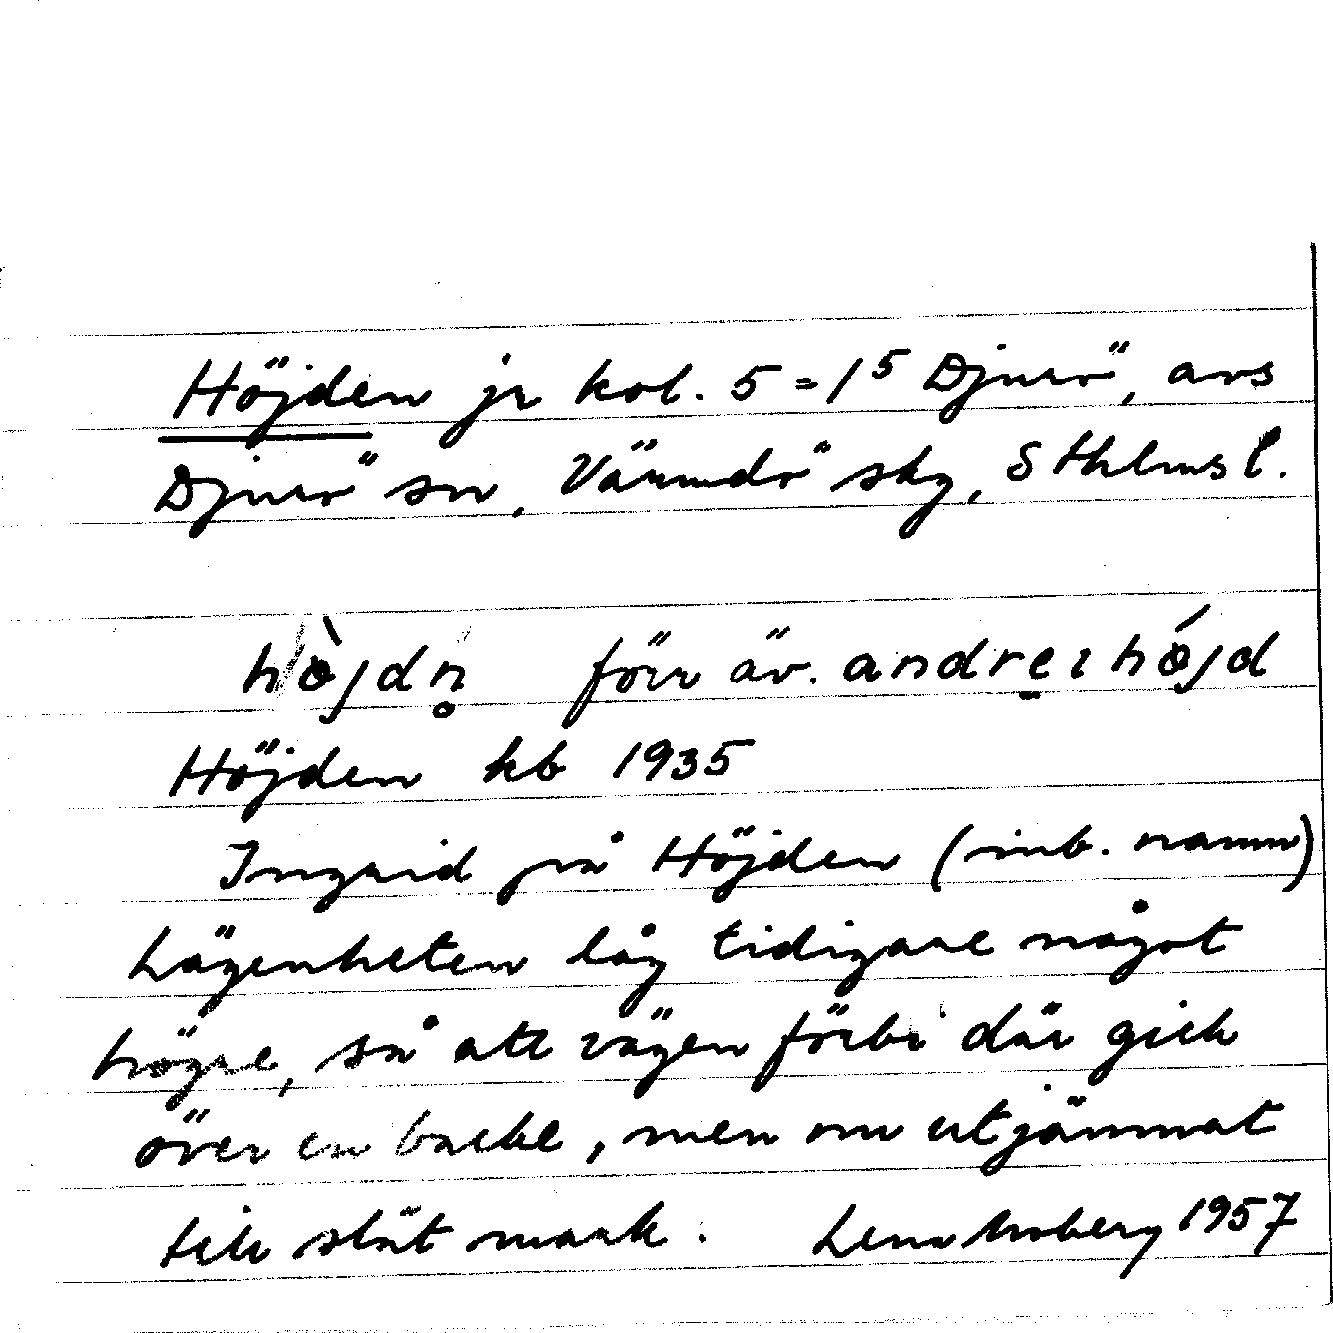 Höjden jr kol. 5 = 1⁵ Djurö, avs
Djurö sn, Värmdö skg, Sthlms l.
hø̀jdn̥ förr äv. andre̠ɪhǿjd
Höjden kb 1935
Ingrid på Höjden (inb. namn)
Lägenheten låg tidigare något
högre, så att vägen förbi där gick
över en backe, men nu utjämnat
till slät mark. Lena Moberg 1957